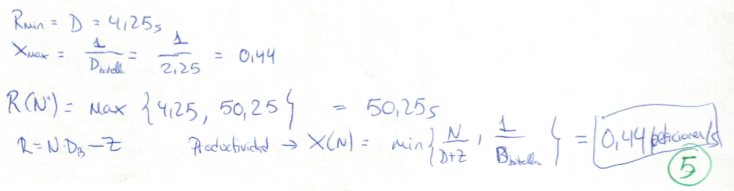 Rmin = D = 4,25s
Xmax = 1/Dbotella = 1/2,25 = 0,44
R(N*) = max {4,25, 50,25} = 50,25s
R = N·DB - Z Productividad → X(N) = min{N/D+Z, 1/Bbotella} = 0,44 peticiones/s
5